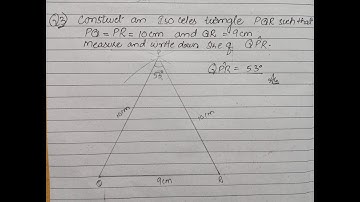 Q3 Construct an Isosceles triangle PQR such that
PQ = PR = 10cm and QR = 9cm
Measure and write down size of QP̂R.
P
53°
QP̂R = 53°
10cm
10cm
Q
9cm
R